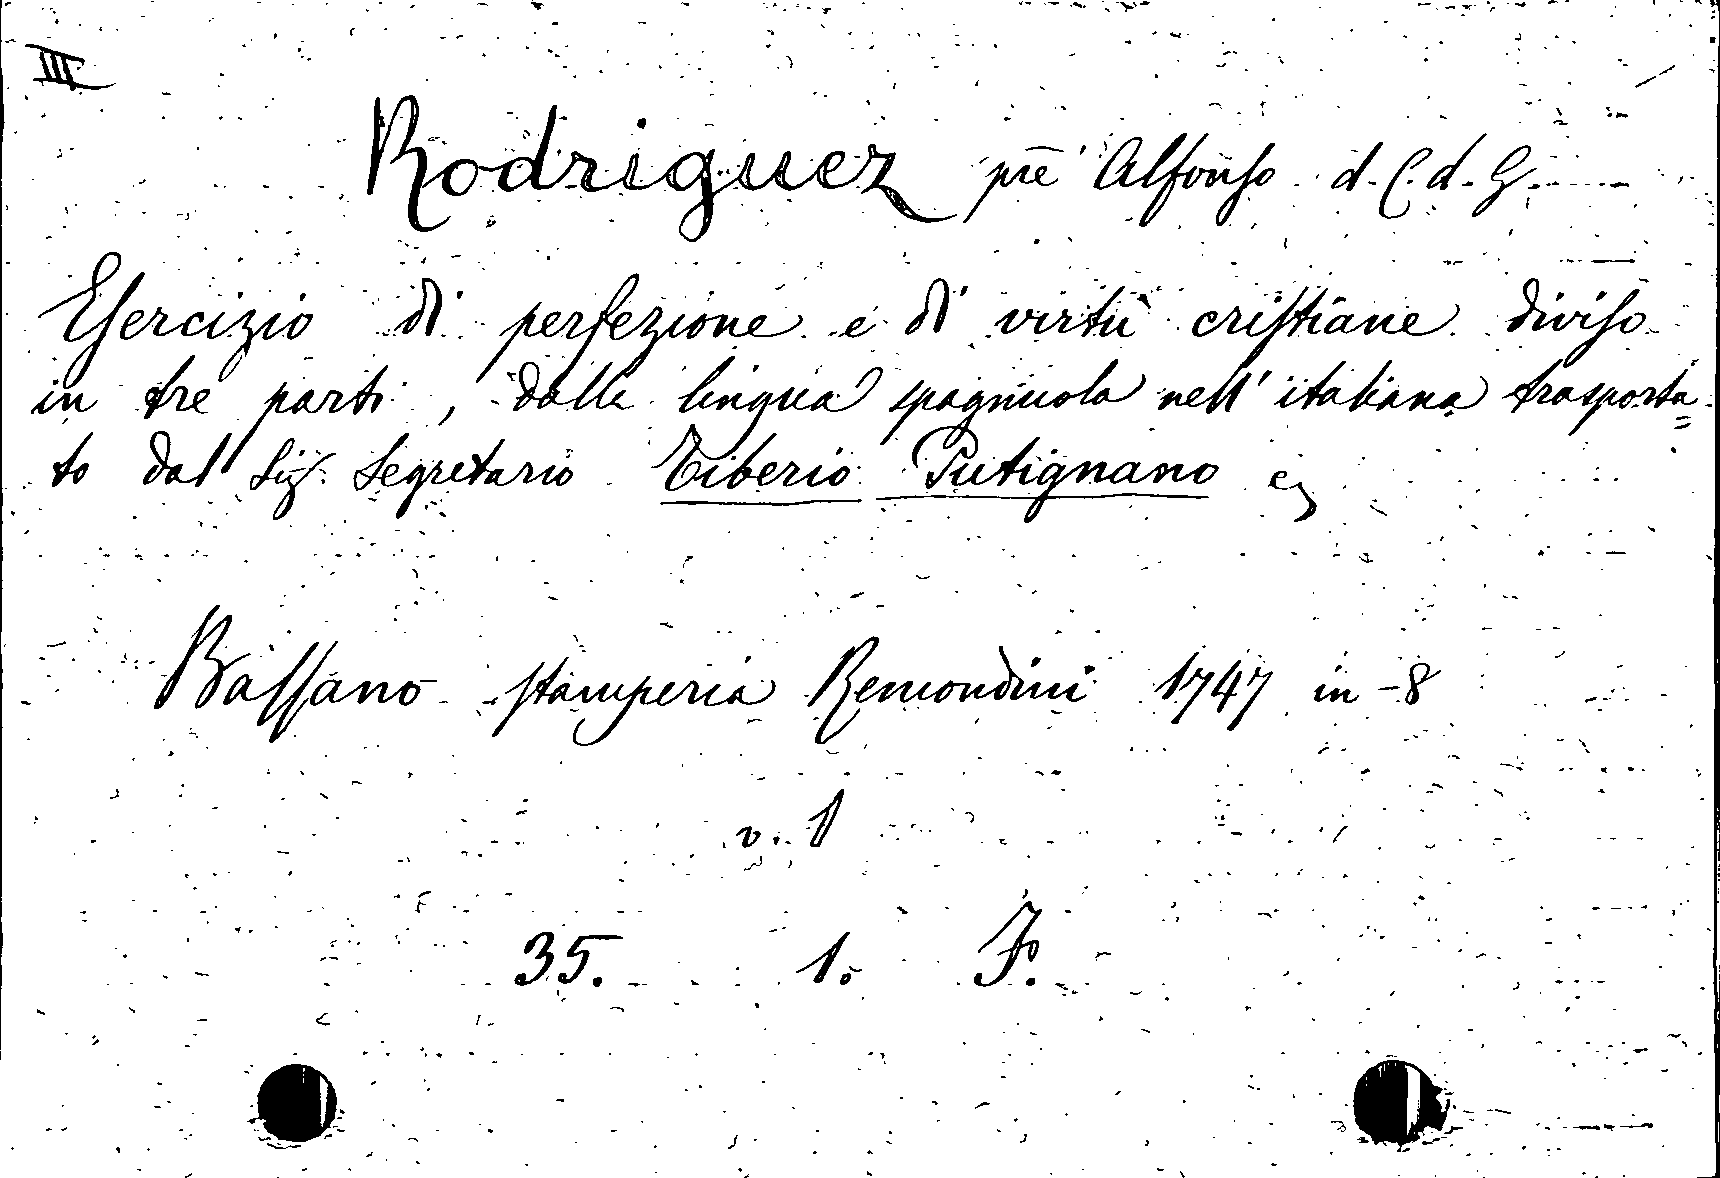 III
Rodriguez pre Alfonso d. C. d. G.
Esercizio di perfezione e di virtù cristiane diviso
in tre parti, dalla lingua spagnuola nell' italiana trasporta=
to dal Sig. Segretario Tiberio Putignano
Bassano stamperia Remondini 1747 in-8
v. 1
35. 1. F.